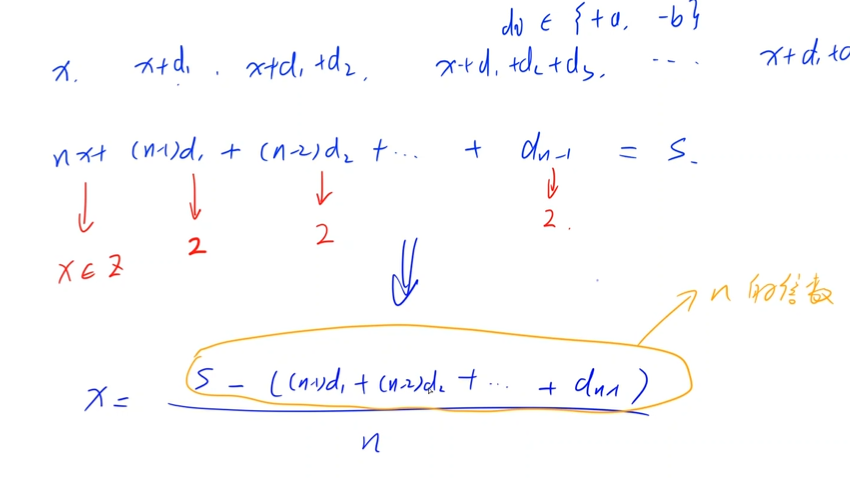 di ∈ {+a, -b}
x, x+d₁, x+d₁+d₂, x+d₁+d₂+d₃, ... x+d₁+d
nx+ (n-1)d₁ + (n-2)d₂ +... + dₙ₋₁ = S.
x∈Z 2 2 2.
n 的倍数
x = (S - ((n-1)d₁ + (n-2)d₂ + ... + dₙ₋₁)) / n